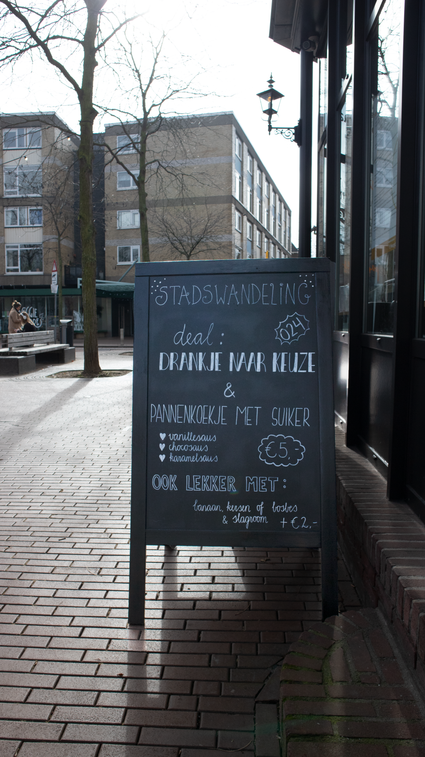 STADSWANDELING
024
deal:
DRANKJE NAAR KEUZE
&
PANNENKOEKJE MET SUIKER
♥ vanillesaus
♥ chocosaus
♥ karamelsaus
€5,-
OOK LEKKER MET:
banaan, kersen of bosbes
& slagroom + €2,-